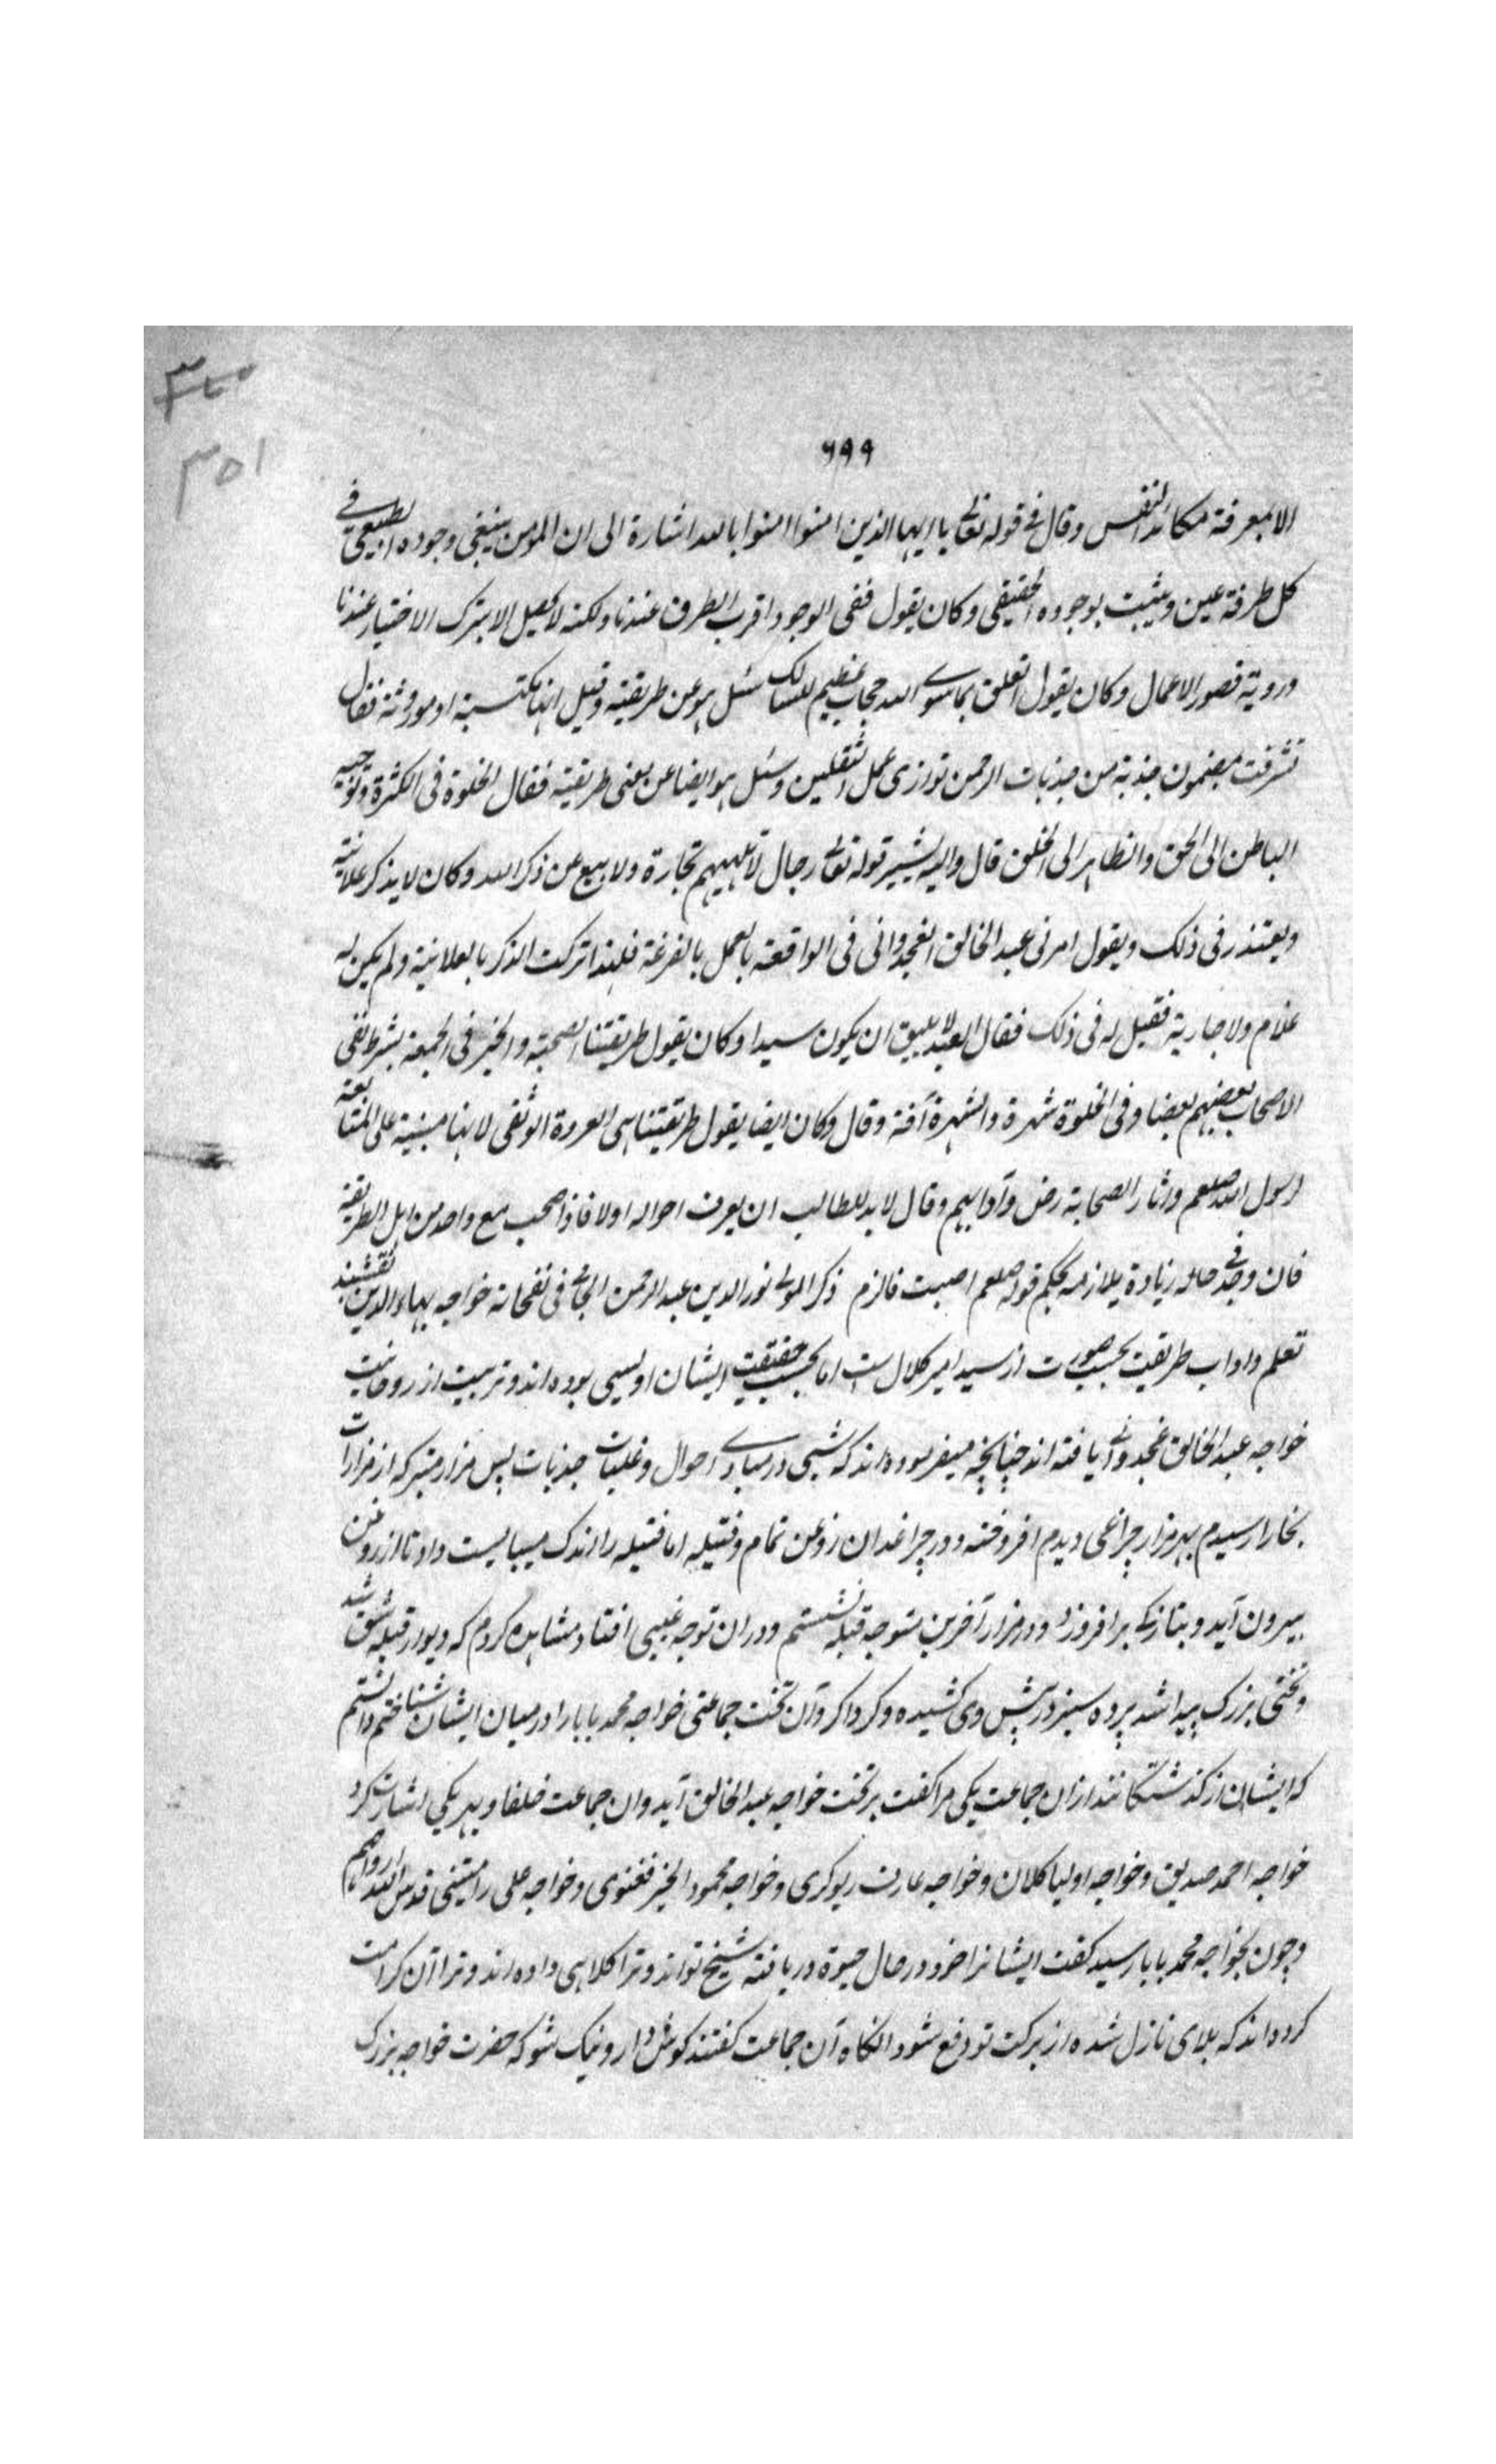 ۳۵۰
۳۵۱
۶۹۹
الا بمعرفة مكائد النفس وقال فی قوله تعالی یا ایها الذین امنوا امنوا بالله اشارة الی ان المومن ینبغی وجوده الطبیعی فی
کل طرفة عین ویثبت بوجوده الحقیقی وکان یقول ففی الوجود اقرب الطرق عندنا ولکنه لا یحصل الا بترک الاختیار عندنا
ورویة قصور الاعمال وکان یقول التعلق بما سوی الله حجاب عظیم للسالک سئل هو عن طریقیته وقیل انها مکتسبة او موروثة فقال
تشرفت بمضمون جذبة من جذبات الرحمن توازی عمل الثقلین وسئل هو ایضا عن معنی طریقیته فقال الخلوة فی الکثرة وتوجیه
الباطن الی الحق والظاهر الی الخلق قال والیه یشیر قوله تعالی رجال لا تلهیهم تجارة ولا بیع عن ذکر الله وکان لا یذکر علانیة
ویعتذر فی ذلک ویقول امرنی عبد الخالق الغجدوانی فی الواقعة بالعمل بالفرغة فلهذا ترکت الذکر بالعلانیة ولم یکن له
غلام ولا جاریة فقیل له فی ذلک فقال العبد لا یلیق ان یکون سیدا وکان یقول طریقتنا الصحبة والخیر فی الجمعة بشرط نفی
الاصحاب بعضهم بعضا وفی الخلوة شهرة والشهرة آفة وقال وکان ایضا یقول طریقتنا هی العروة الوثقی لانها مبنیة علی المتابعة
لرسول الله صلعم واثار الصحابة رض وآدابهم وقال لابد للطالب ان یعرف احواله اولا فاذا صحب مع واحد من اهل الطریقة
فان وجد فی حاله زیادة یلازمه بحکم قوله صلعم اصبت فالزم ذکر المولی نور الدین عبد الرحمن الجامی فی نفحاته خواجه بهاء الدین نقشبند
تعلم واداب طریقت بحسب صورت از سید امیر کلال است اما بحسب حقیقت ایشان اویسی بوده اند و تربیت از روحانیت
خواجه عبد الخالق غجدوانی یافته اند چنانچه میفرموده اند که شبی در مبادی احوال و غلبات جذبات پس مزار متبرکه از مزارات
بخارا رسیدم بهر مزار چراغی دیدم افروخته و در چراغدان روغن تمام و فتیله اما فتیله را اندک میبایست داد تا از روغن
بیرون آید و بتازگی برافروزد و در مزار آخرین متوجه قبله نشستم و در ان توجه غیبی افتاد مشاهده کردم که دیوار قبله شق شد
و تختی بزرگ پیدا شد پرده سبز در پیش وی کشیده و گرداگرد آن تخت جماعتی خواجه محمد بابا را در میان ایشان شناختم دانستم
که ایشان از گذشتگانند از ان جماعت یکی مرا گفت بر تخت خواجه عبد الخالق آید و ان جماعت خلفا و بهر یکی اشارت کرد
خواجه احمد صدیق و خواجه اولیا کلان و خواجه عارف ریوکری و خواجه محمود الخیر فغنوی و خواجه علی رامیتنی قدس الله ارواحهم
و چون بخواجه محمد بابا رسید گفت ایشانرا خود در حال حیوة دریافته شیخ تواند و ترا کلاهی داده اند و ترا آن کرامت
کرده اند که بلای نازل شده از برکت تو دفع شود انگاه آن جماعت گفتند گوش دار و نیک شو که حضرت خواجه بزرک